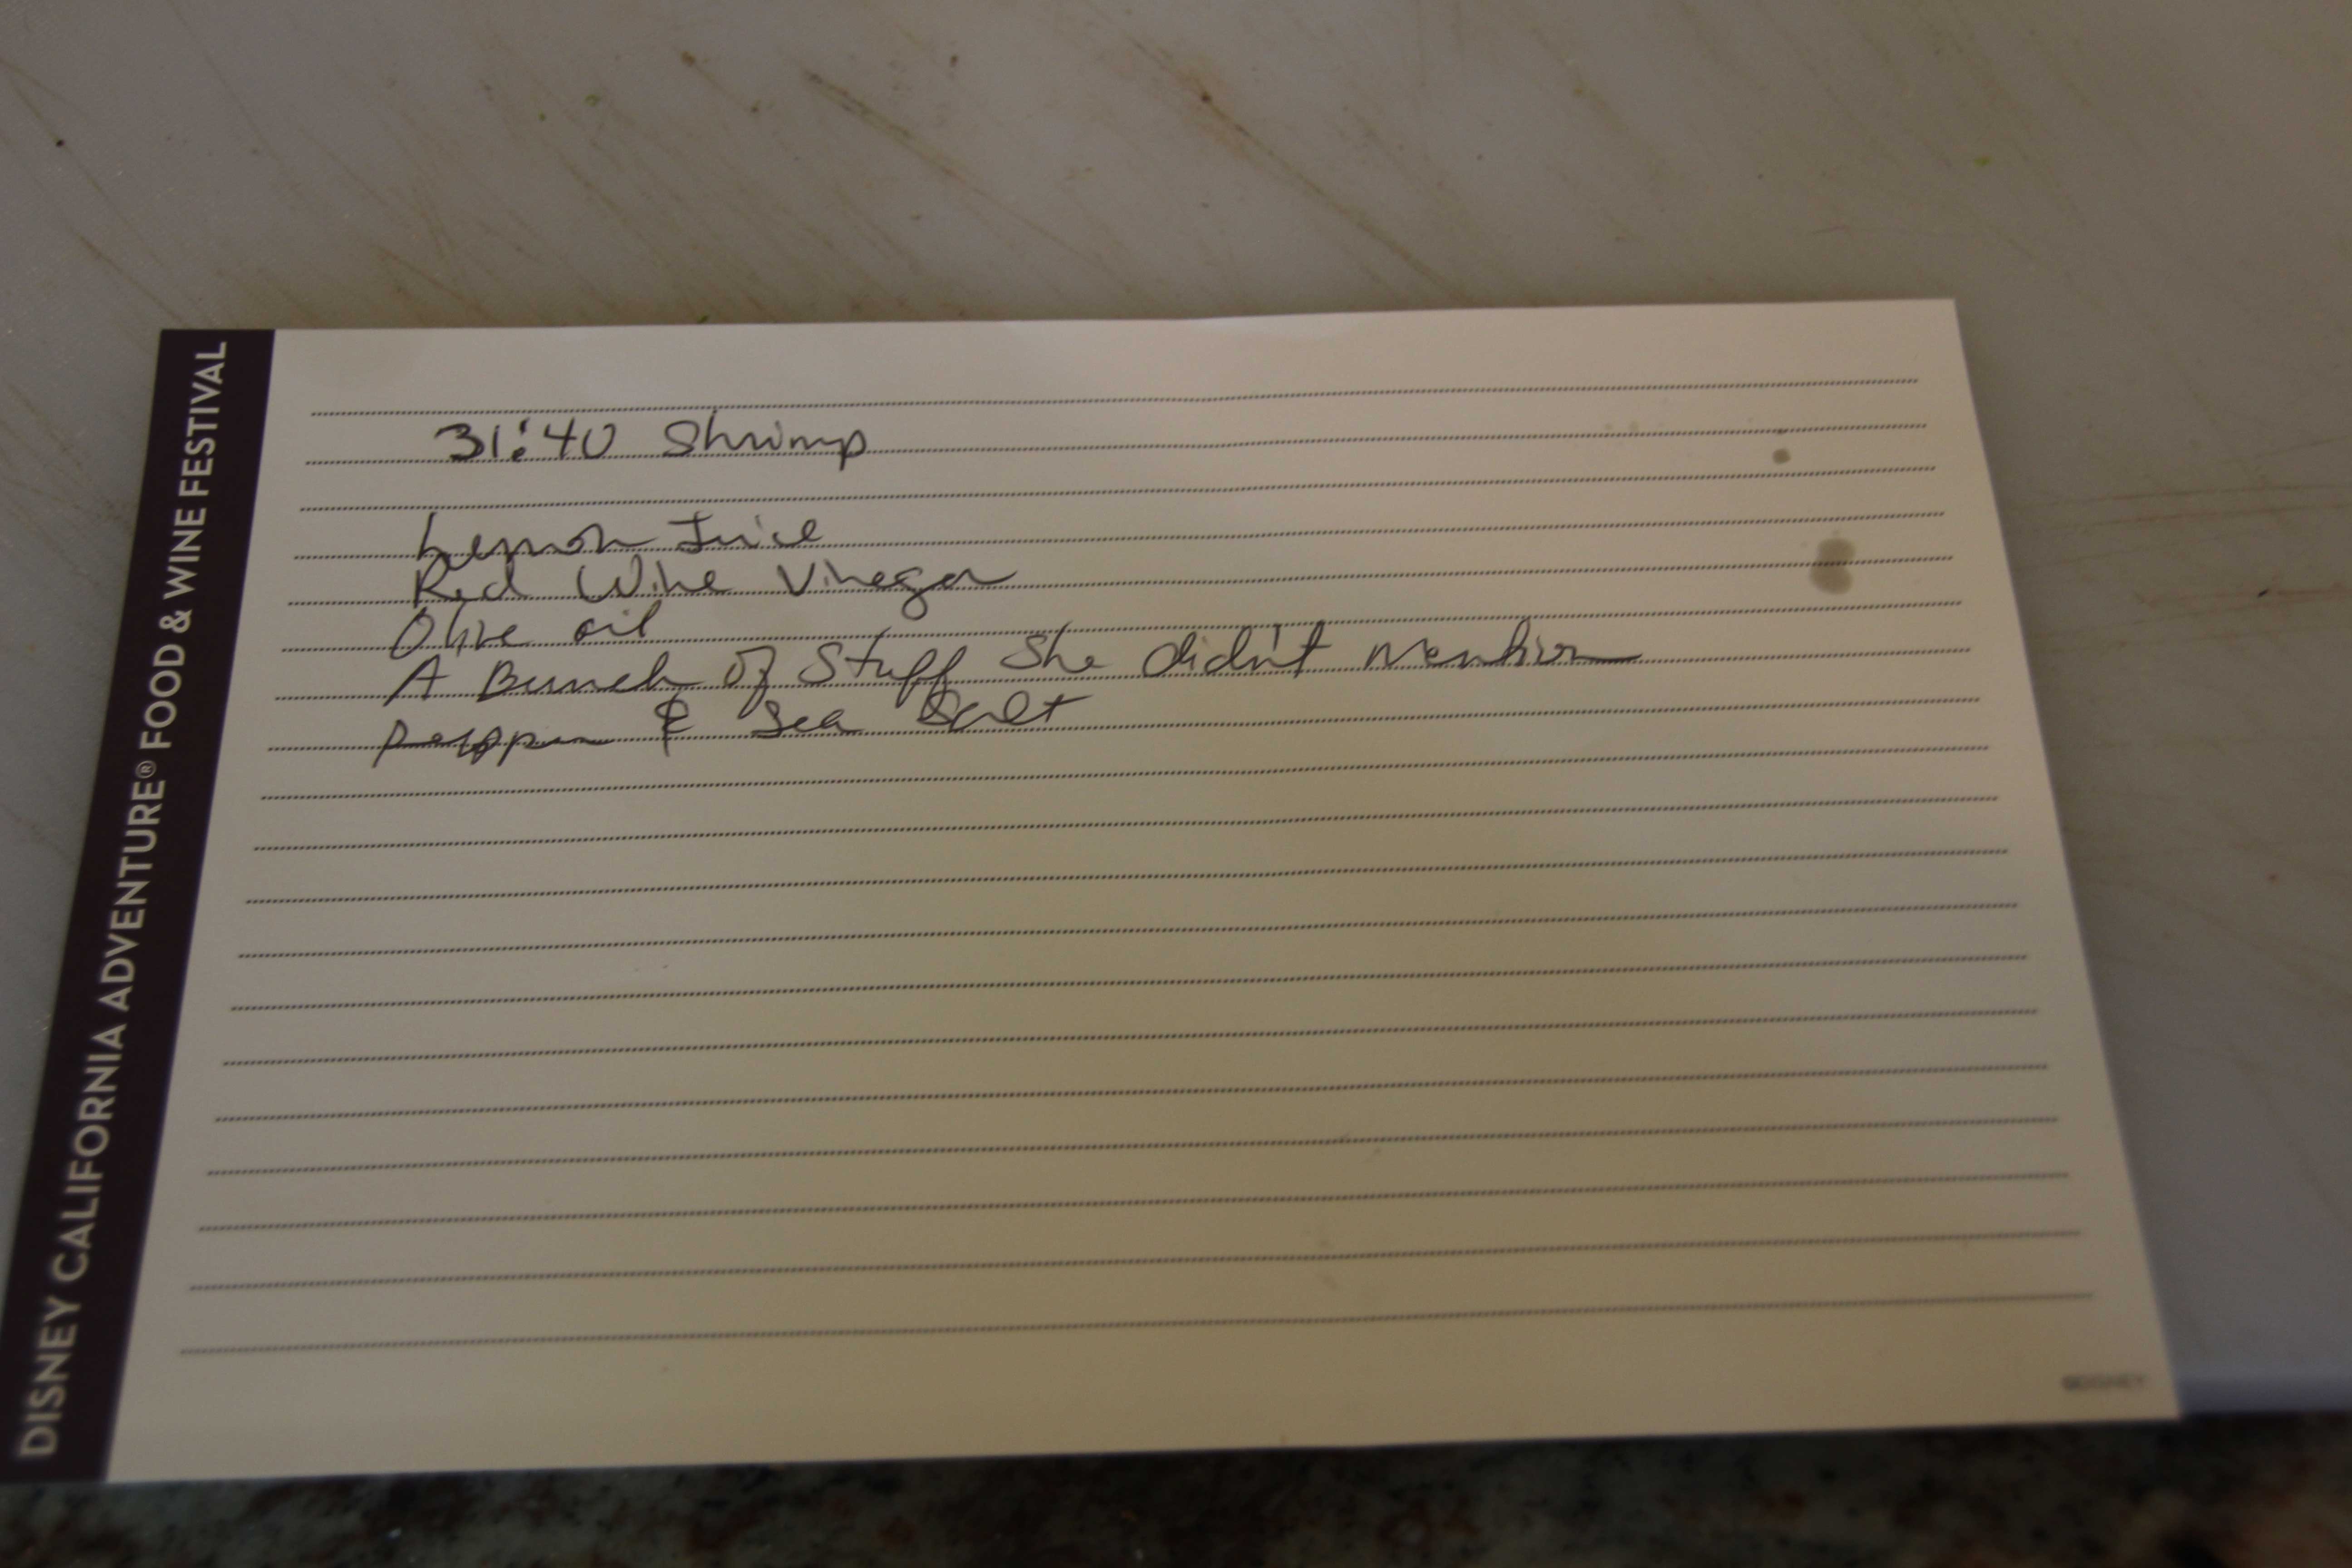 DISNEY CALIFORNIA ADVENTURE® FOOD & WINE FESTIVAL
31:40 Shrimp
Lemon Juice
Red Wine Vinegar
Olive oil
A Bunch Of Stuff She didn't Mention
Pepper & Sea Salt
©DISNEY